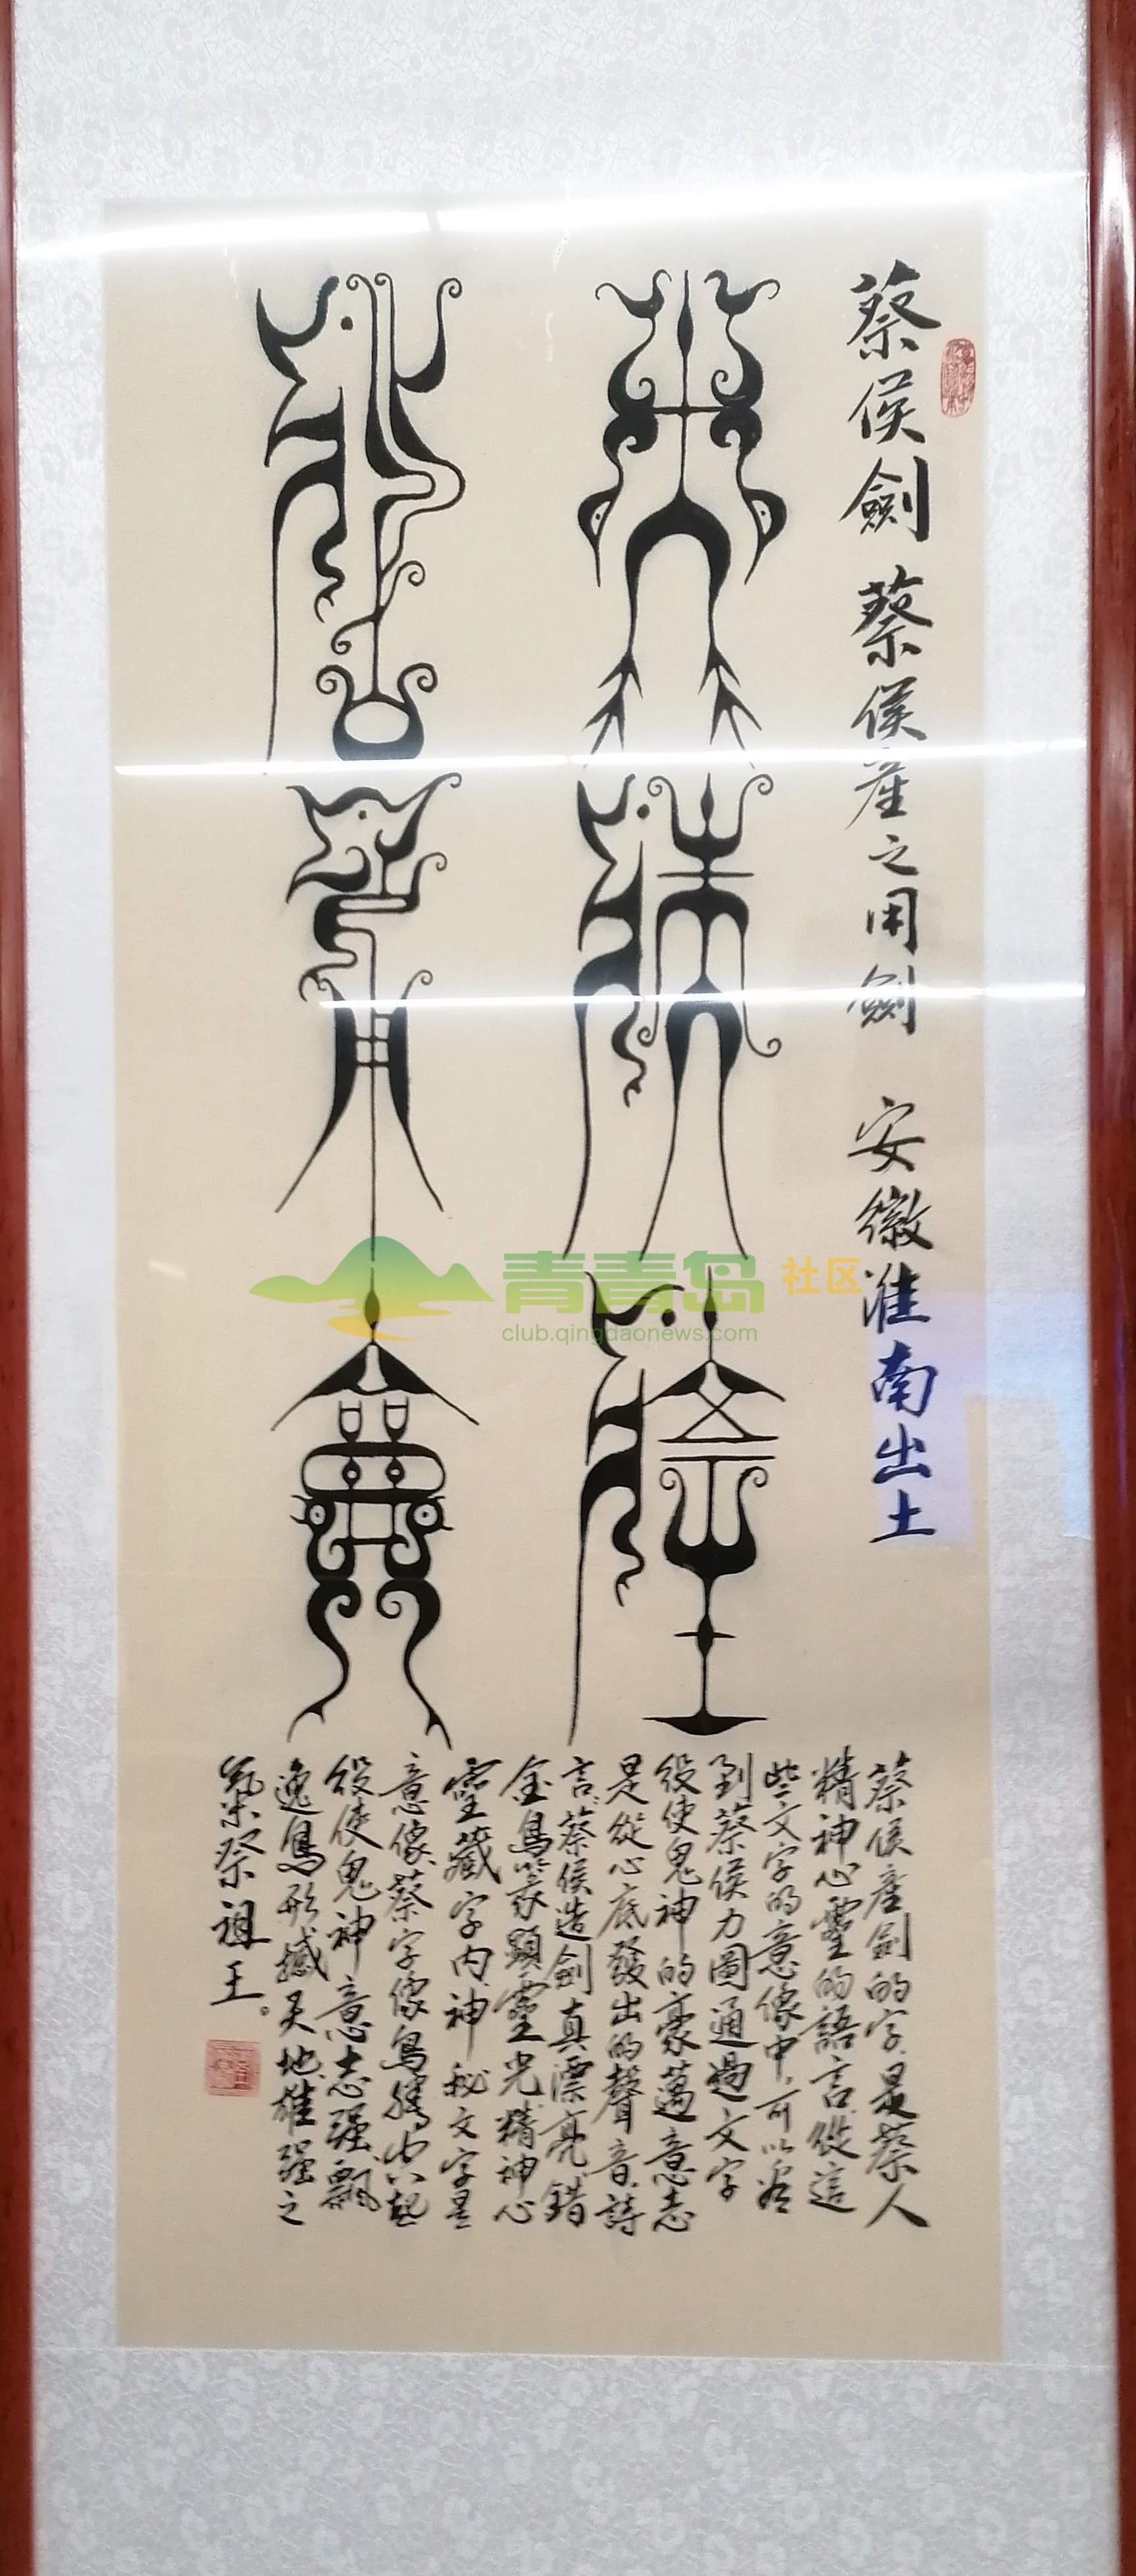 蔡侯劍 蔡侯産之用劍 安徽淮南出土
蔡侯産之用劍
蔡侯産劍的字是蔡人
精神心靈的語言.從這
些文字的意像中,可以看
到蔡侯力圖通過文字
役使鬼神的豪邁意志
是從心底發出的聲音.詩
言.蔡侯造劍真漂亮.錯
金鳥篆顯靈光.精神心
靈藏字内.神秘文字是
意像.蔡字像鳥騰出起
役使鬼神意志强.飄
逸鳥形撼天地.雄强之
祭祖王。
青青岛社区
club.qingdaonews.com